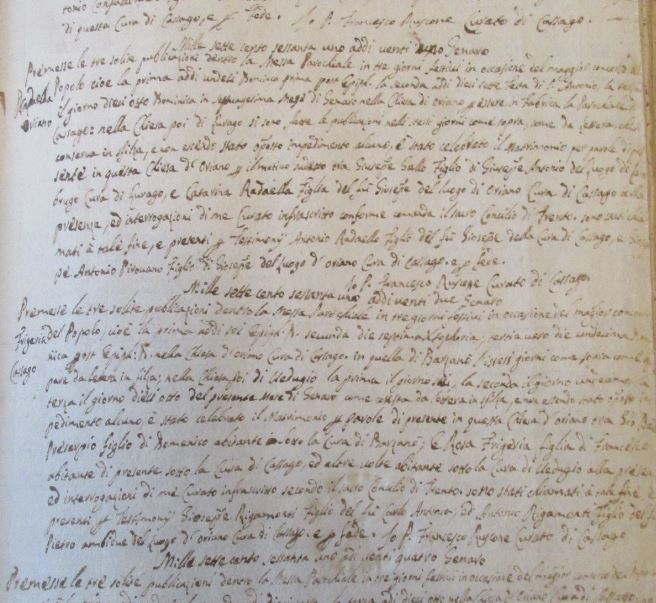 di questa Cura di Cassago, e p fede. Io P. Francesco Ruscone Curato di Cassago.
Mille sette cento sessanta uno addi venti uno Genaro
Premesse le tre solite publicazioni dentro la Messa Parochiale in tre giorni festivi in occasione del maggior concorso del
Radaella Popolo cioe la prima addi undeci Dominica prima post Epiph. la seconda addi dieci sette Festa di S. Antonio, la terza
Oriano il giorno dieci otto Dominica in Septuagesima Mese di Genaro nella Chiesa di Oriano p essere in Fabrica la Parochiale di
Cassago: nella Chiesa poi di Lurago si sono fatte le publicazioni negli stessi giorni come sopra, come da lettera che si
conserva in filza, e non essendo stato opposto impedimento alcuno, è stato celebrato il Matrimonio per parole di pre
sente in questa Chiesa d'Oriano p il motivo sudetto tra Giuseppe Gallo Figlio di Giuseppe Antonio del luogo di
brugo Cura di Lurago, e Catarina Radaella Figlia del fù Giuseppe del luogo di Oriano Cura di Cassago alla
presenza, ed interrogazioni di me Curato infrascritto conforme comanda il sacro Concilio di Trento, sono stati chia
mati à tale fine, e presenti p Testimonij Antonio Radaello Figlio del fù Gioseppe della Cura di Cassago, e Giusep
pe Antonio Pirovano Figlio di Gioseppe del luogo d'oriano Cura di Cassago. e p fede.
Io P. Francesco Ruscone Curato di Cassago
Mille sette cento sessanta uno addi venti due Genaro
Premesse le tre solite publicazioni dentro la Messa Parochiale in tre giorni festivi in occasione del maggior concorso
Frigeria del Popolo, cioè la prima addi sei secunda die septima, tertia vero die undecima Domi
Cassago nica post nella Chiesa di oriano Cura di Cassago. in quella di Barzanò stessi giorni come sopra come ap
pare da lettera in filza; nella Chiesa poi di Vedugio la prima il giorno sei, la seconda il giorno undecimo, la
terza il giorno dieci otto del presente Mese di Genaro come consta da lettera in filza, e non essendo stato opposto im
pedimento alcuno, è stato celebrato il Matrimonio p parole di presente in questa Chiesa d'oriano tra Gio
Presezpio figlio di Domenico abitante sotto la Cura di Barzanò; e Rosa Frigeria figlia di Francesco
abitante di presente sotto la Cura di Cassago, ed altre volte abitante sotto la Cura di Vedugio alla presenza
ed interrogazioni di me Curato infrascritto secondo il sacro Concilio di Trento, sono stati chiamati à tale fine e
presenti p Testimonij Gioseppe Rigamonti Figlio del fù Carlo Antonio, ed Antonio Rigamonti Figlio del fù
Pietro ambidue del Luogo d'oriano Cura di Cassago. e p fede. Io P. Francesco Ruscone Curato di Cassago
Mille sette cento sessanta uno adi venti quatro Genaro
Premesse le tre solite publicazioni dentro la Messa Parochiale in tre giorni festivi in occasione del maggior concorso del Popolo